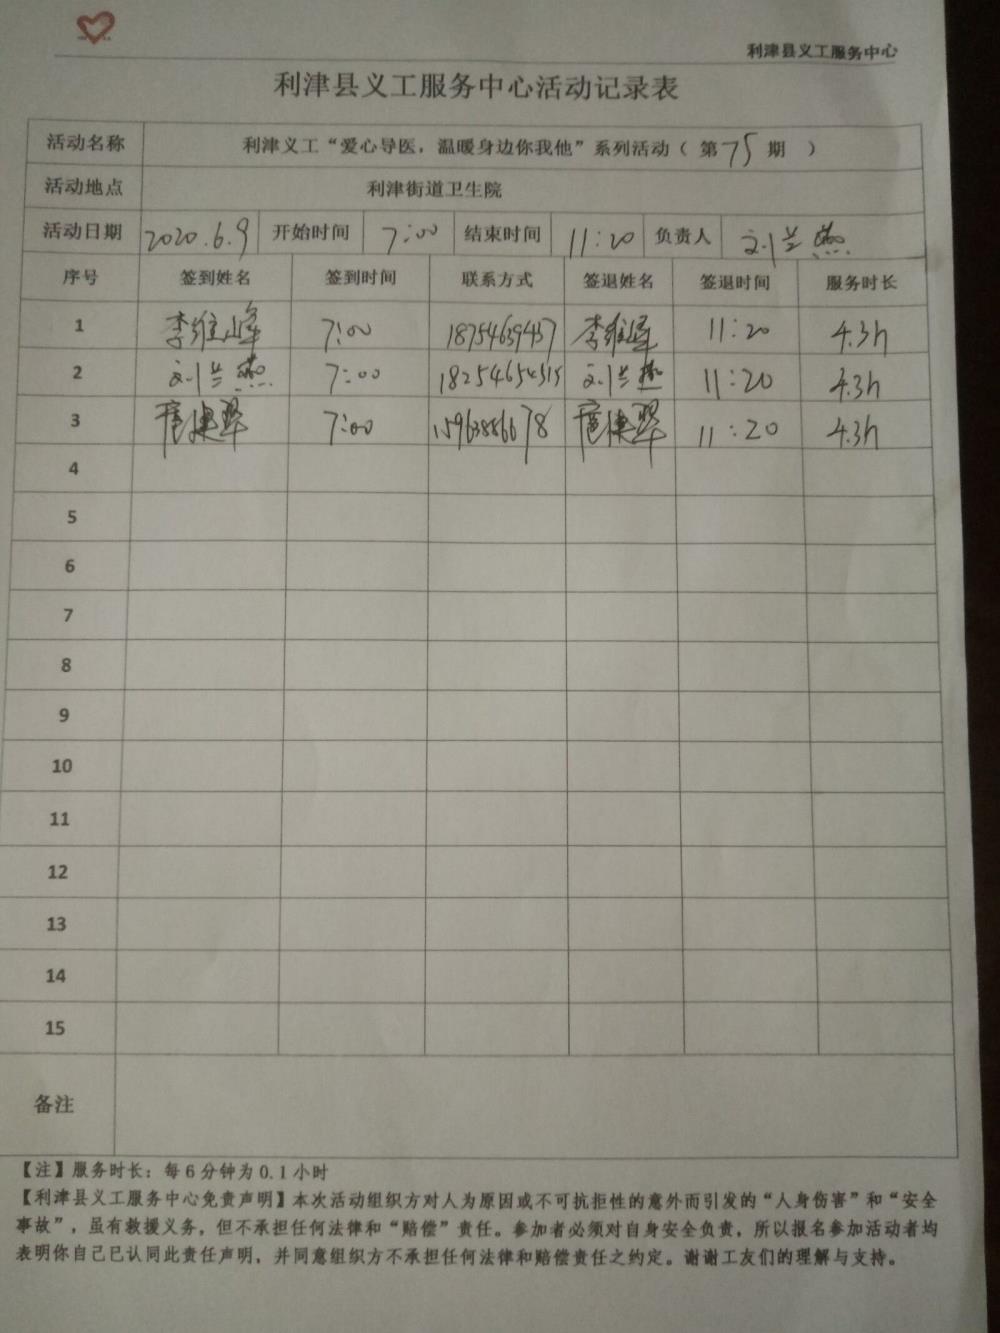 利津县义工服务中心
利津县义工服务中心活动记录表
活动名称 利津义工“爱心导医，温暖身边你我他”系列活动（ 第75期 ）
活动地点 利津街道卫生院
活动日期 2020.6.9 开始时间 7:00 结束时间 11:20 负责人 刘兰燕
序号 签到姓名 签到时间 联系方式 签退姓名 签退时间 服务时长
1 李维峰 7:00 李维峰 11:20 4.3h
2 刘兰燕 7:00 18254654515 刘兰燕 11:20 4.3h
3 7:00 15963886678 11:20 4.3h
4
5
6
7
8
9
10
11
12
13
14
15
备注
【注】服务时长：每6分钟为0.1小时
【利津县义工服务中心免责声明】本次活动组织方对人为原因或不可抗拒性的意外而引发的“人身伤害”和“安全
事故”，虽有救援义务，但不承担任何法律和“赔偿”责任。参加者必须对自身安全负责，所以报名参加活动者均
表明你自己已认同此责任声明，并同意组织方不承担任何法律和赔偿责任之约定。谢谢工友们的理解与支持。